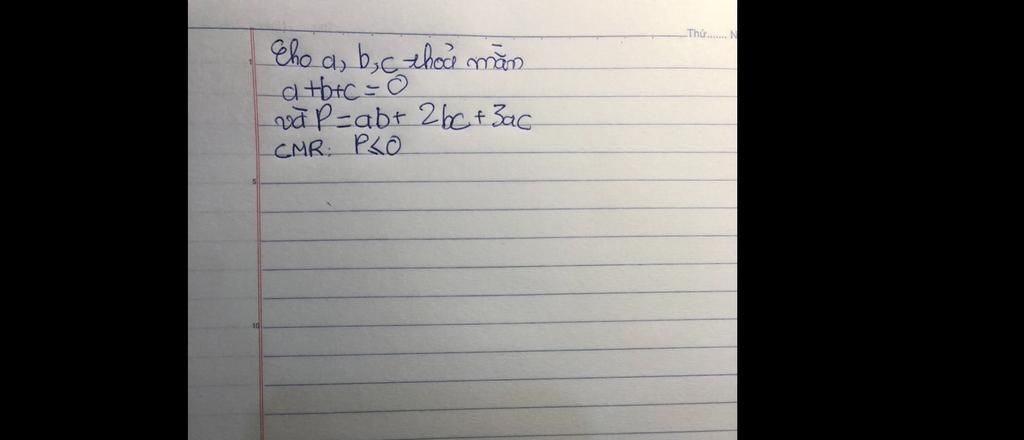 Thứ....... N
Cho a, b, c thoả mãn
a+b+c=0
và P=ab+ 2bc+3ac
CMR: P≤0
5
10